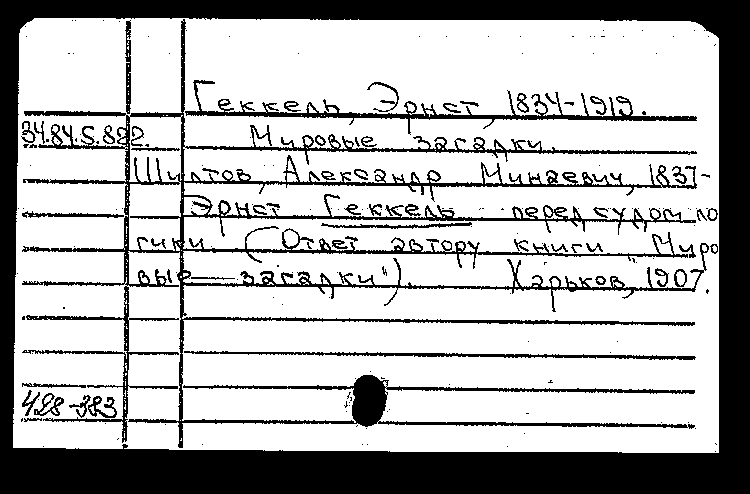 Геккель, Эрнст, 1834-1919.
34.84.5.822. Мировые загадки.
Шилтов, Александр Минаевич, 1837-
Эрнст Геккель перед судом ло
гики. (Ответ автору книги "Миро
вые загадки"). Харьков, 1907.
428-383